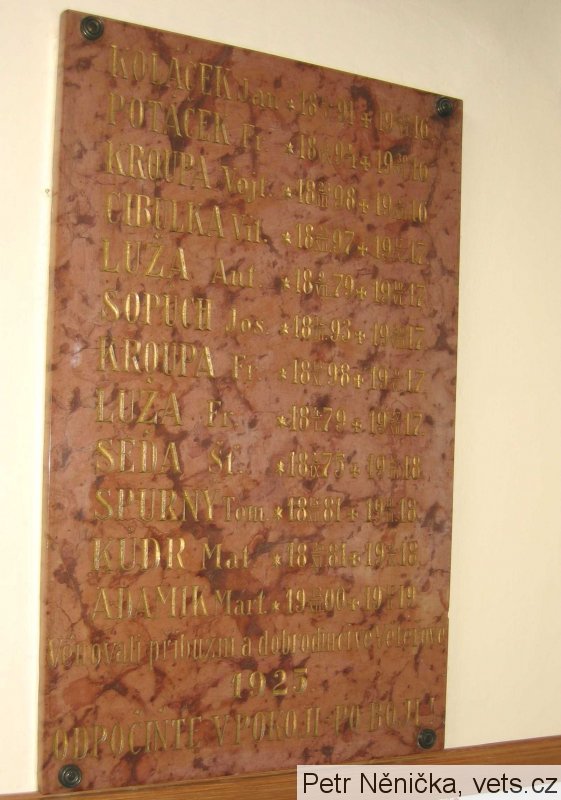 KOLÁČEK Jan * 18 91 + 19 16.
POTÁČEK Fr. * 18 94 + 19 16
KROUPA Vojt. * 18 98 + 19 16
CIBULKA Vil. * 18 97 + 19 17.
LUŽA Ant. * 18 79 + 19 17.
ŠOPUCH Jos. * 18 93 + 19 17.
KROUPA Fr. * 18 98 + 19 17
LUŽA Fr. * 18 79 + 19 17.
ŠÉDA Št. * 18 75 + 19 18.
SPURNÝ Tom. * 18 81 + 19 18.
KUDR Mat. * 18 81 + 19 18.
ADAMÍK Mart. * 19 00 + 19 19.
Věnovali příbuzní a dobrodinci ve Veterově
1925.
ODPOČIŇTE V POKOJI PO BOJI!
Petr Něnička, vets.cz